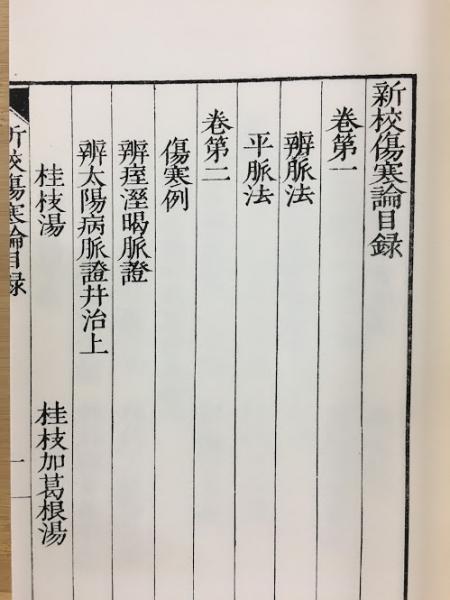 新校傷寒論目録
卷第一
辨脈法
平脈法
卷第二
傷寒例
辨痓溼暍脈證
辨太陽病脈證幷治上
桂枝湯 桂枝加葛根湯
新校傷寒論目録 一